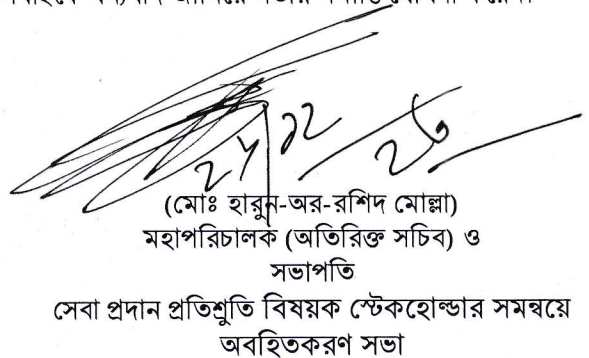 (মোঃ হারুন-অর-রশিদ মোল্লা)
মহাপরিচালক (অতিরিক্ত সচিব) ও
সভাপতি
সেবা প্রদান প্রতিশ্রুতি বিষয়ক স্টেকহোল্ডার সমন্বয়ে
অবহিতকরণ সভা